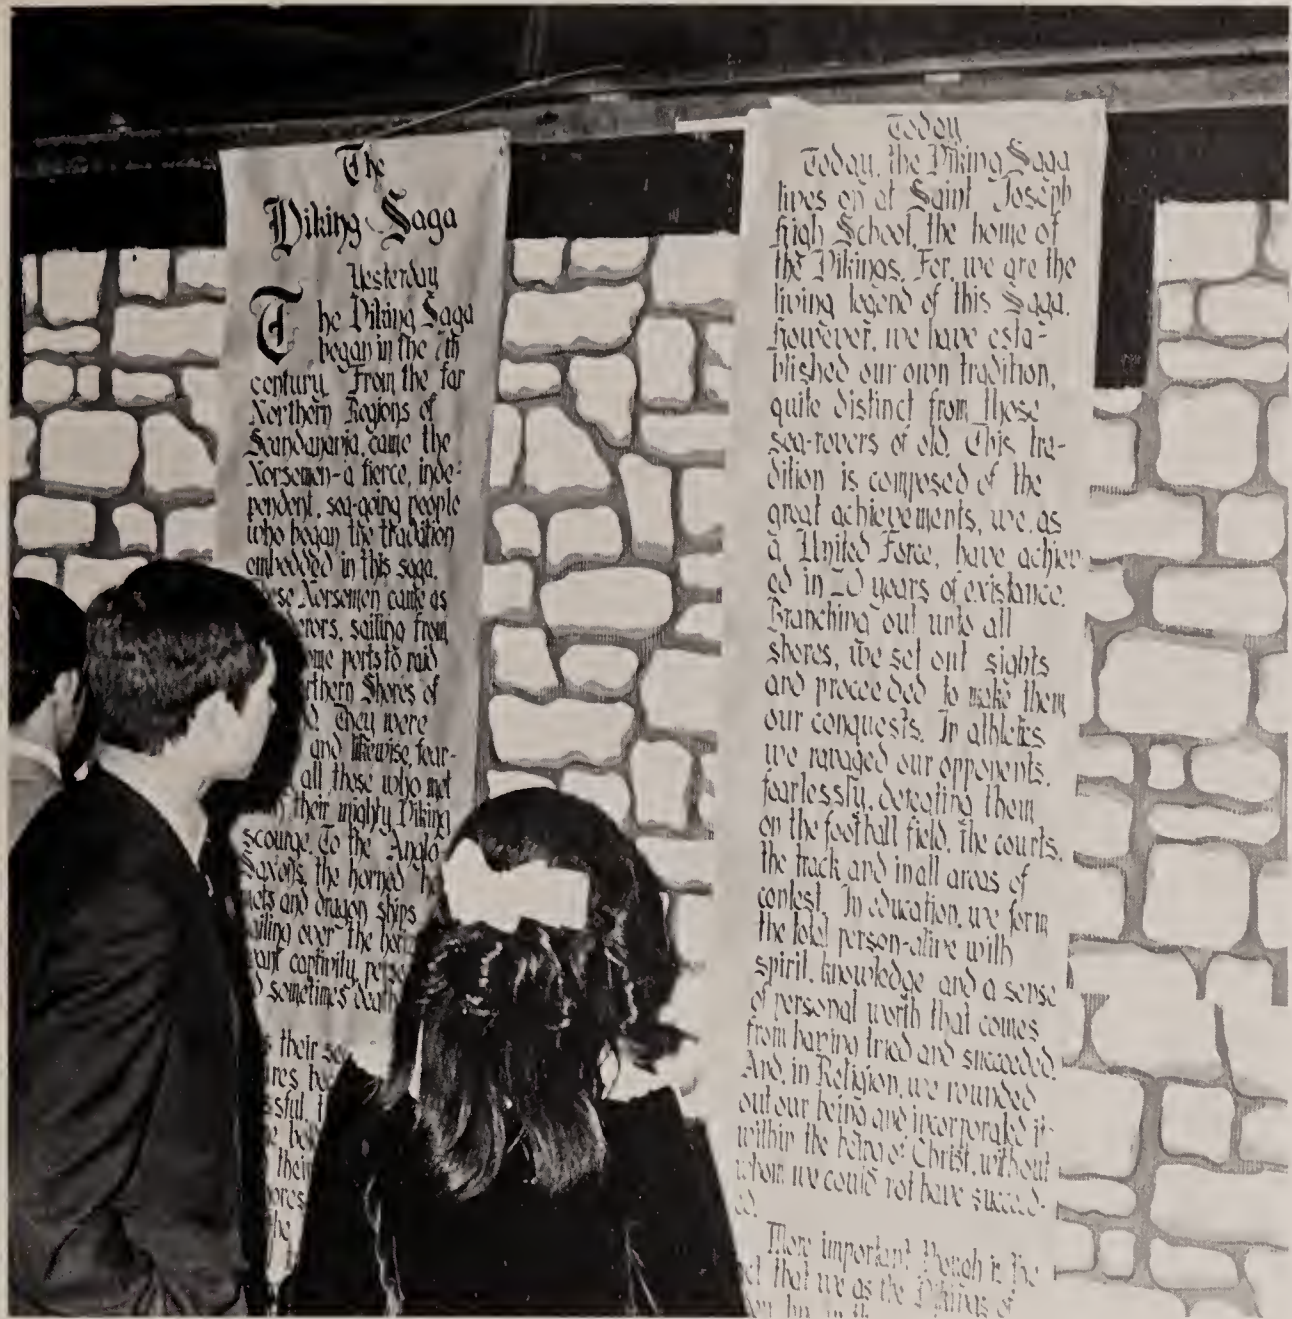 The
Viking Saga
Yesterday
The Viking Saga
began in the 7th
century. From the far
Northern Regions of
Scandanavia, came the
Norsemen-a fierce, inde-
pendent, sea-going people
who began the tradition
embedded in this saga.
ese Norsemen came as
erors, sailing from
ome ports to raid
rthern Shores of
d. They were
and likewise, fear-
all those who met
their mighty Viking
scourge. To the Anglo
Saxons, the horned he
mets and dragon ships
ailing over the hori
eant captivity, perse
d sometimes death
their se
res be
sful, t
their
ores
he
Today
Today, the Viking Saga
lives on at Saint Joseph
High School, the home of
the Vikings. For, we are the
living legend of this Saga.
However, we have esta-
blished our own tradition,
quite distinct from those
sea-rovers of old. This tra-
dition is composed of the
great achievements, we, as
a United Force, have achiev-
ed in 10 years of existance.
Branching out unto all
shores, we set out sights
and proceeded to make them
our conquests. In athletics
we ravaged our opponents,
fearlessly, defeating them
on the football field, the courts,
the track and in all areas of
contest. In education, we form
the total person-alive with
spirit, knowledge and a sense
of personal worth that comes
from having tried and succeeded.
And, in Religion, we rounded
out our being and incorporated it
within the being of Christ, without
whom we could not have succeed-
ed.
More important though is the
that we as the Vikings of